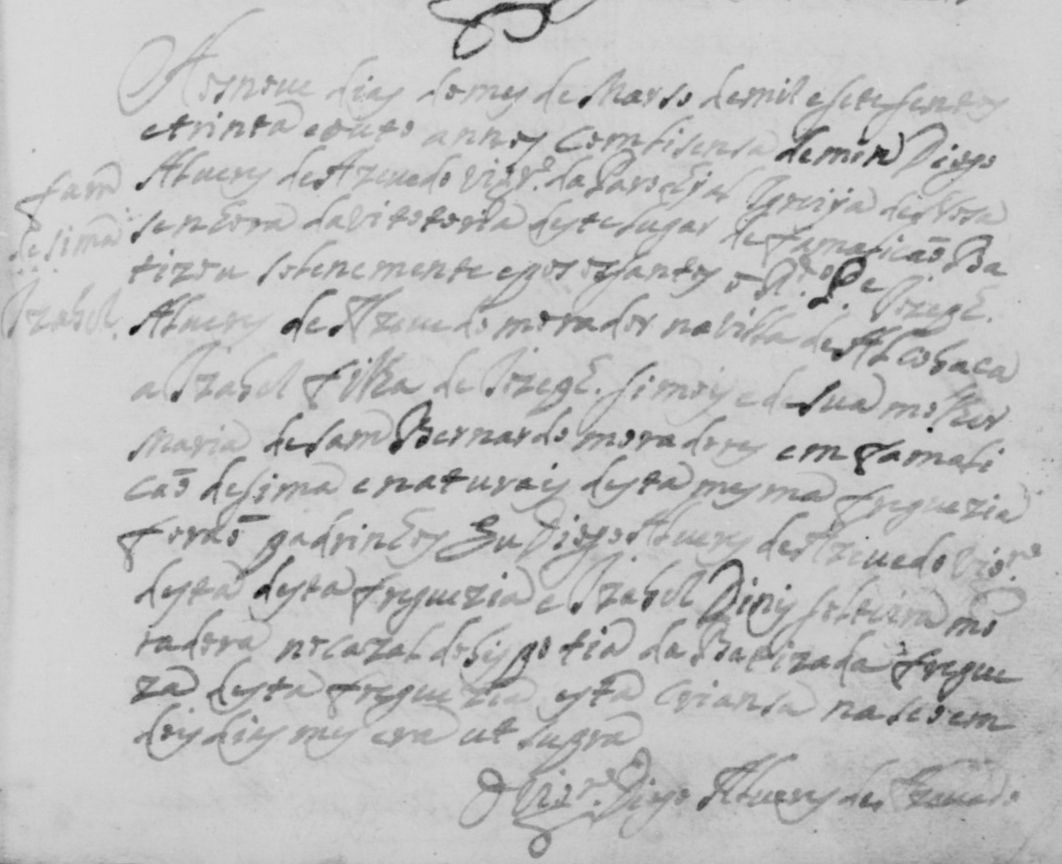 Aos nove dias do mes de Marso de mil e setesentos
e trinta e outo annos Com lisensa de mim Diogo
fam.
Alveres de Azevedo vigr.º da Parochial Igreija de Nosa
de sima
senhora da vitotoria deste lugar de famalicaõ Ba
tizou solenemente e pos os santos o R.do P.e Jozeph.
Izabel.
Alveres de Azevedo morador na villa de Alcobaca
a Izabel filha de Jozeph. simois e de sua molher
Maria de sam Bernardo moradores em famali
caõ de sima e naturais desta mesma freguezia
foraõ padrinhos Eu Diogo Alveres de Azevedo vigr.º
desta desta freguezia e Izabel Dinis solteira mo
radora no cazal do tia da Batizada fregue
za desta freguezia esta Criansa naseo em
dois dias mes era ut supra
O Vigr.º Diogo Alveres de Azevedo